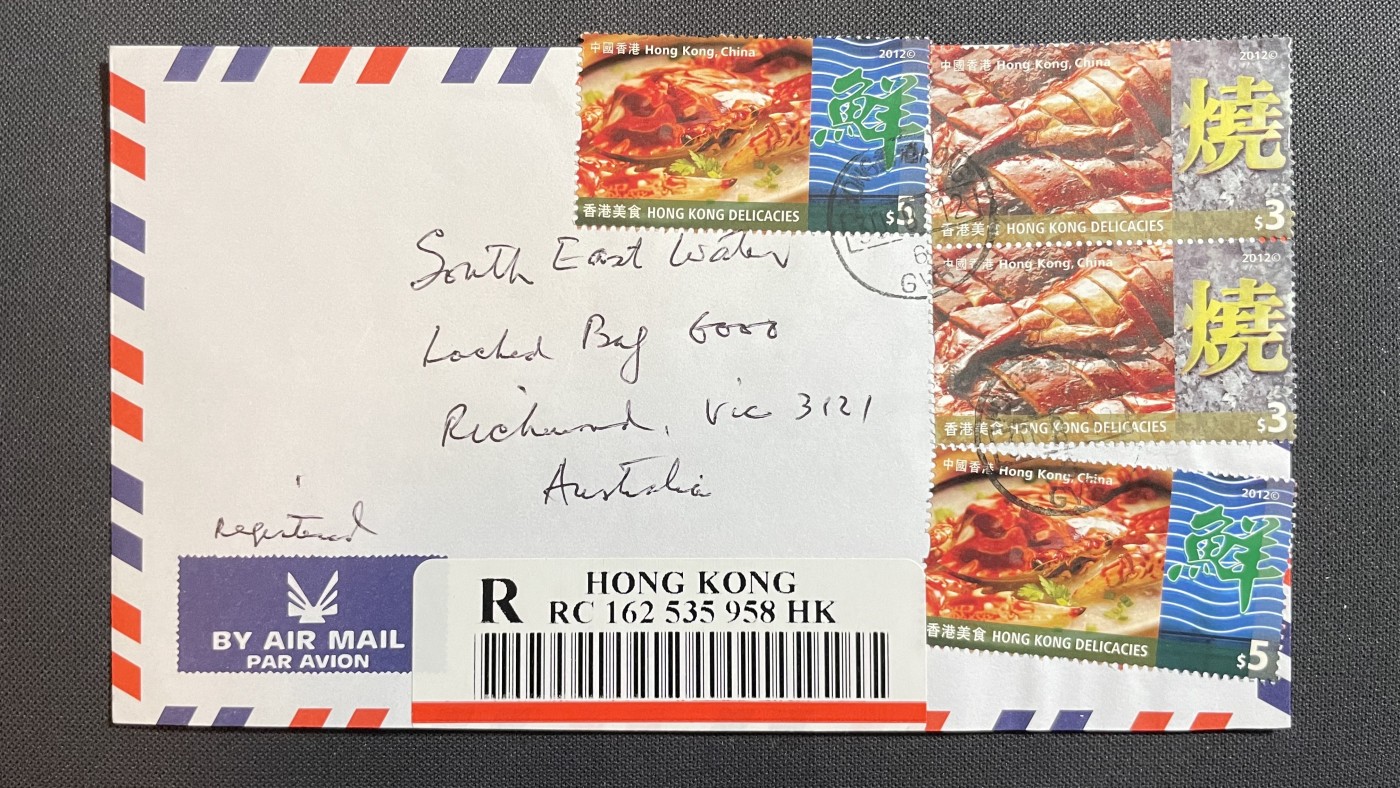 中國香港 Hong Kong, China
2012©
鮮
香港美食 HONG KONG DELICACIES
$5
中國香港 Hong Kong, China
2012©
燒
香港美食 HONG KONG DELICACIES
$3
中國香港 Hong Kong, China
2012©
燒
香港美食 HONG KONG DELICACIES
$3
中國香港 Hong Kong, China
2012©
鮮
香港美食 HONG KONG DELICACIES
$5
South East Water
Locked Bag 6000
Richmond, Vic 3121
Australia
Registered
BY AIR MAIL
PAR AVION
R HONG KONG
RC 162 535 958 HK